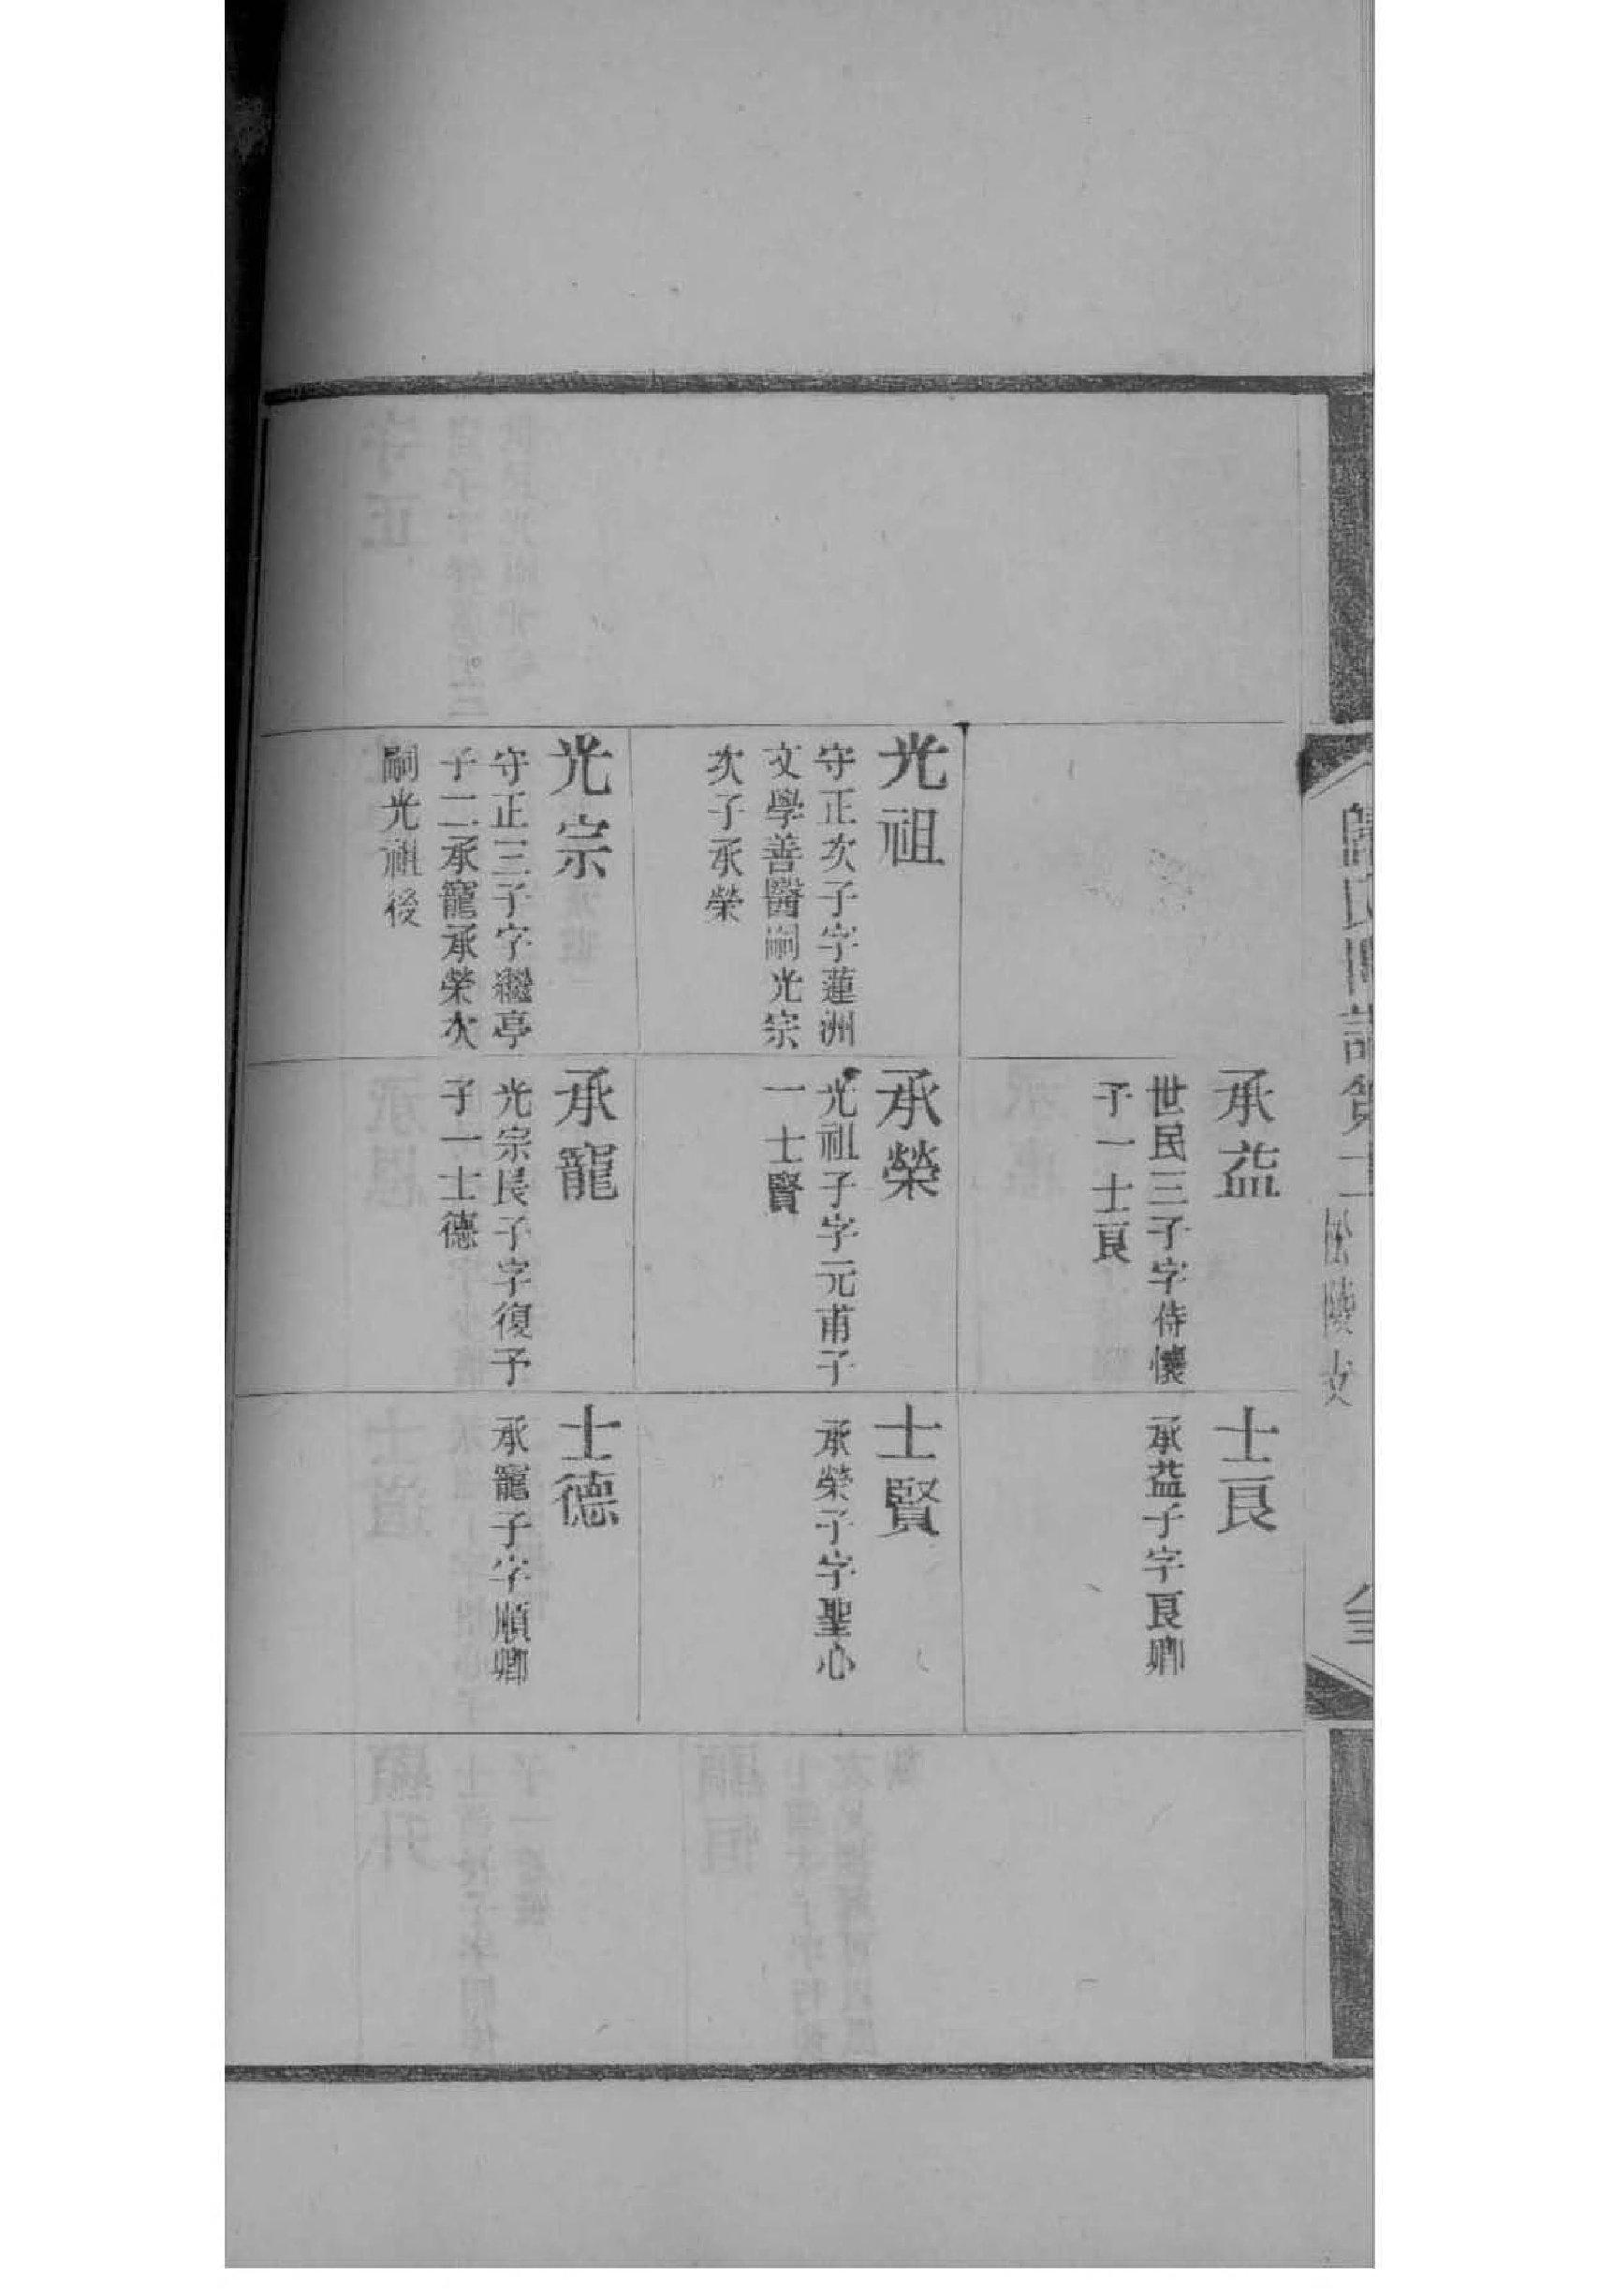 松陵支
承益
世民三子字侍懷
子一士良
士良
承益子字良卿
光祖
守正次子字蓮洲
文學善醫嗣光宗
次子承榮
承榮
光祖子字元甫子
一士賢
士賢
承榮子字聖心
光宗
守正三子字繼亭
子二承寵承榮次
嗣光祖後
承寵
光宗長子字復予
子一士德
士德
承寵子字順卿